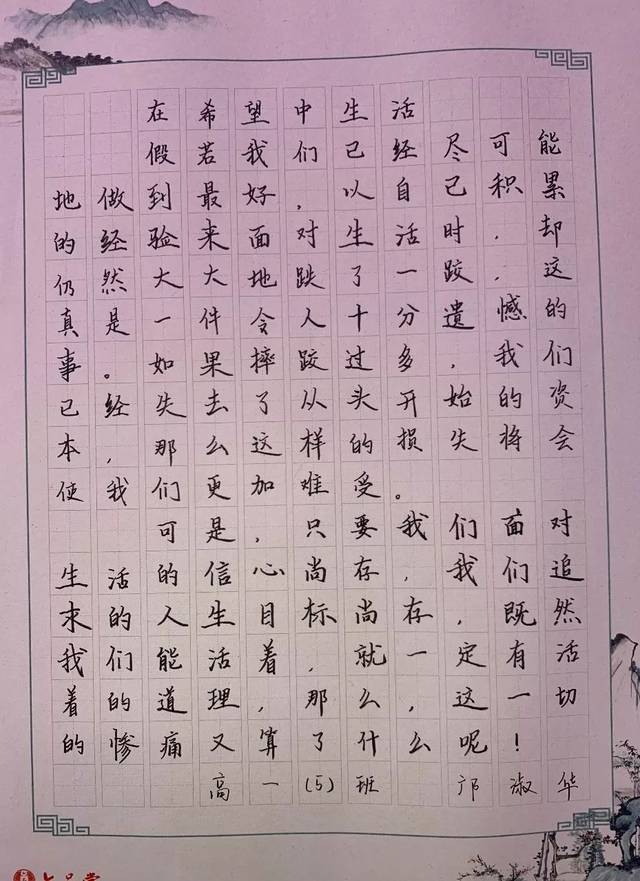 在希望中生活
假若我们已经尽可能
地做到最好，以自己积累
的经验来面对生活时，却
仍然大大地跌了一跤，这
真是一件令人十分遗憾的
事。如果摔跤过多，我们
已经失去了从头开始的资
本，那么这样的损失将会
使我们更加难受。
可是，只要我们面对
生活的信心尚存，我们追
求的人生目标尚存，既然
我们能活着，就一定有活
着的道理，那么，这一切
的惨痛又算了什么呢！
高一(5)班 邝淑华